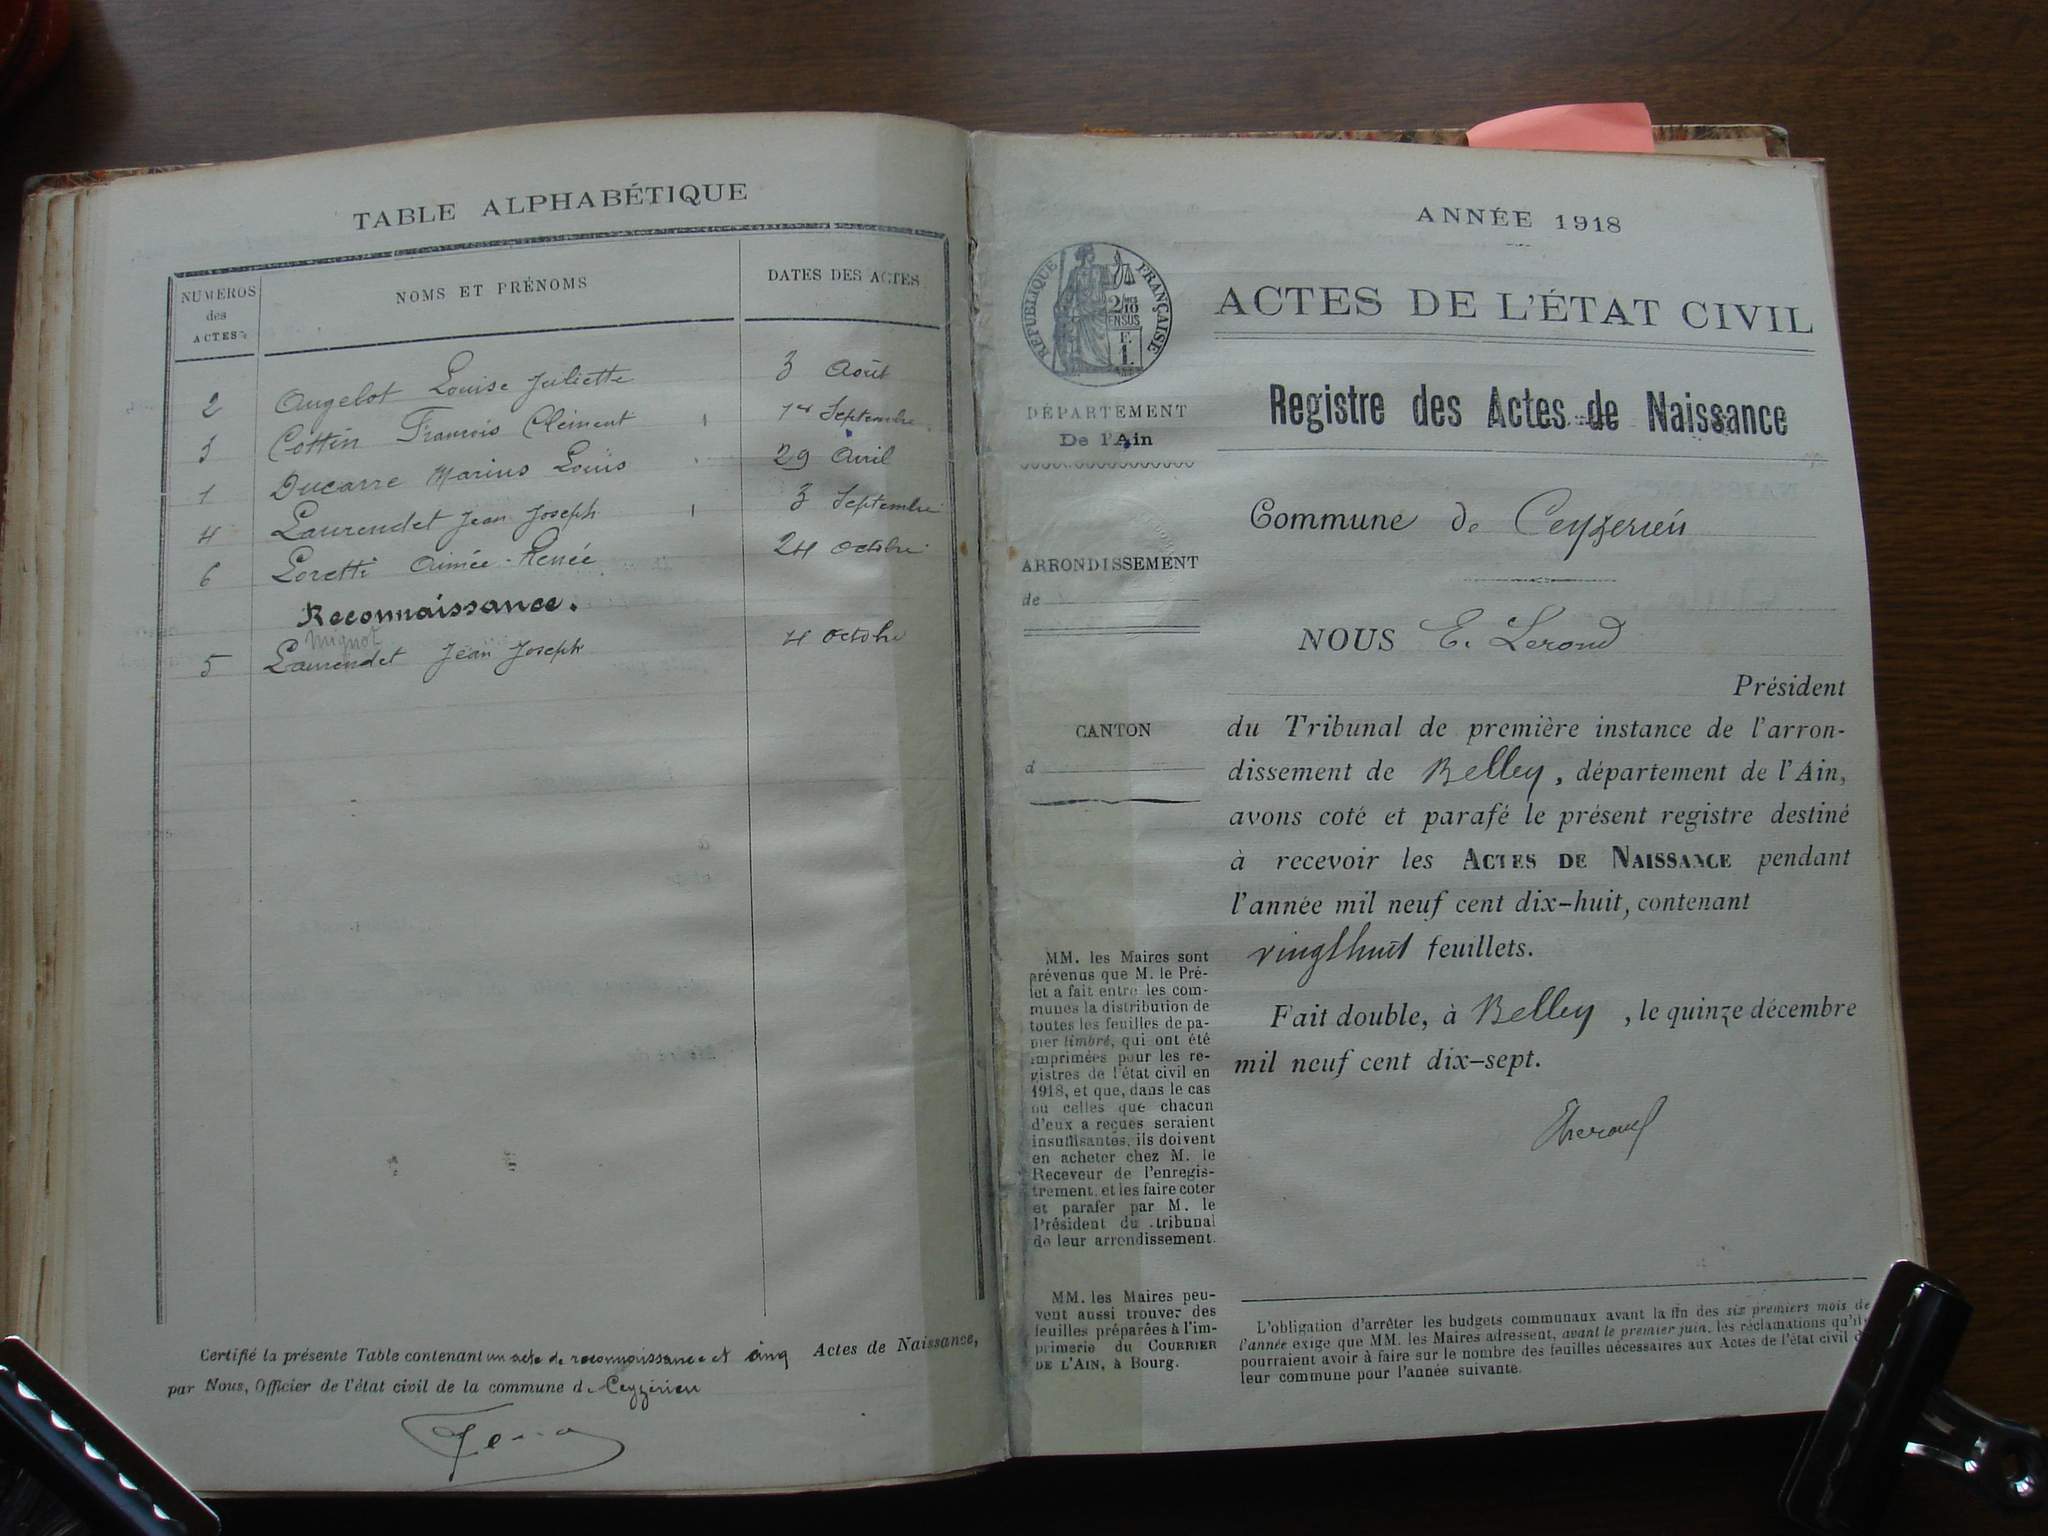 TABLE ALPHABÉTIQUE
NUMEROS
des
ACTES
NOMS ET PRÉNOMS
DATES DES ACTES
2 Augelot Louise Juliette 3 Août
3 Cottin François Clément 1er Septembre
1 Ducarre Marius Louis 29 Avril
4 Laurendet Jean Joseph 3 Septembre
6 Loretti Aimée-Renée 24 octobre
Reconnaissance.
Mignot
5 Laurendet Jean Joseph 4 octobre
Certifié la présente Table contenant un acte de reconnaissance et cinq Actes de Naissance,
par Nous, Officier de l'état civil de la commune de Ceyzérieu
ANNÉE 1918
RÉPUBLIQUE FRANÇAISE
2/10
EN SUS
F.
1.
ACTES DE L'ÉTAT CIVIL
DÉPARTEMENT
De l'Ain
Registre des Actes de Naissance
Commune de Ceyzérieu
ARRONDISSEMENT
de
NOUS E. Lerond
Président
CANTON
d
du Tribunal de première instance de l'arron-
dissement de Belley, département de l'Ain,
avons coté et parafé le présent registre destiné
à recevoir les ACTES DE NAISSANCE pendant
l'année mil neuf cent dix-huit, contenant
vingt huit feuillets.
Fait double, à Belley, le quinze décembre
mil neuf cent dix-sept.
MM. les Maires sont
prévenus que M. le Pré-
fet a fait entre les com-
munes la distribution de
toutes les feuilles de pa-
pier timbré, qui ont été
imprimées pour les re-
gistres de l'état civil en
1918, et que, dans le cas
où celles que chacun
d'eux a reçues seraient
insuffisantes, ils doivent
en acheter chez M. le
Receveur de l'enregis-
trement, et les faire coter
et parafer par M. le
Président du tribunal
de leur arrondissement.
MM. les Maires peu-
vent aussi trouver des
feuilles préparées à l'im-
primerie du COURRIER
DE L'AIN, à Bourg.
L'obligation d'arrêter les budgets communaux avant la fin des six premiers mois de
l'année exige que MM. les Maires adressent, avant le premier juin, les réclamations qu'ils
pourraient avoir à faire sur le nombre des feuilles nécessaires aux Actes de l'état civil d
leur commune pour l'année suivante.